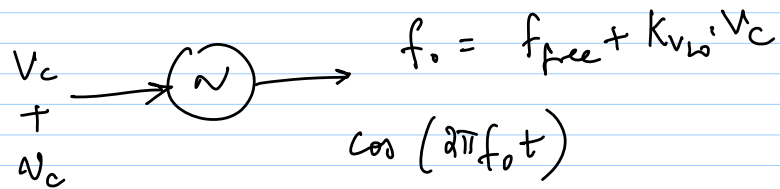 V_c
+
v_c
~
f_o = f_free + K_vco · V_c
cos (2πf_o t)